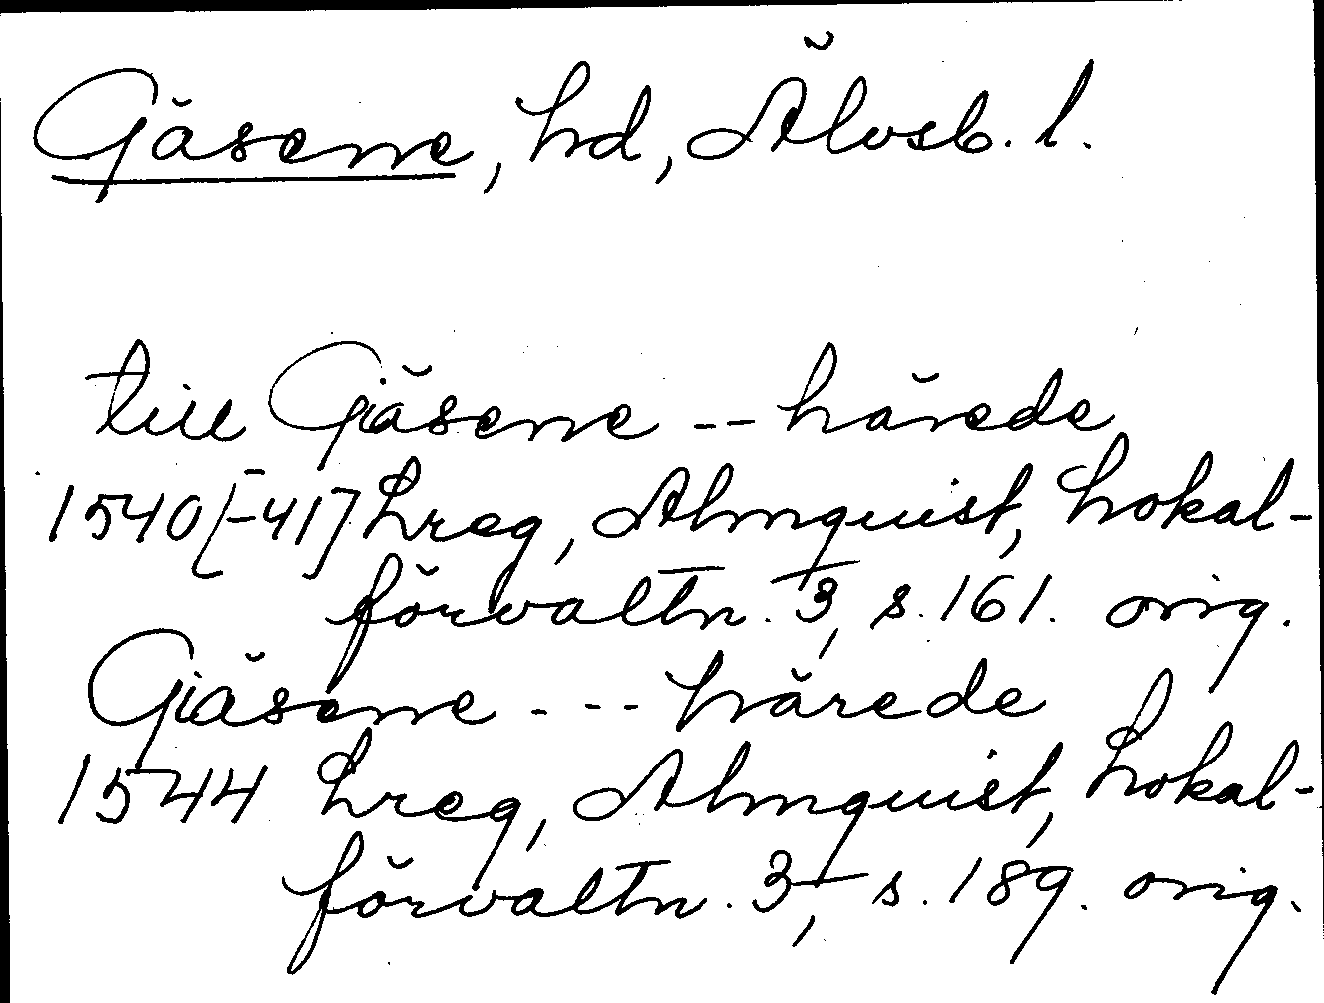 Gäsene, hd, Älvsb. l.
till Giäsene -- härede
1540[-41] Lreg, Almquist, Lokal-
förvaltn. 3, s. 161. orig.
Giäsene --- härede
1544 Lreg, Almquist, Lokal-
förvaltn. 3, s. 189. orig.